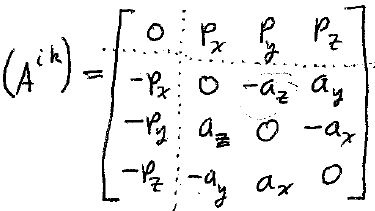 0 p_x p_y p_z
(A^{ik}) = -p_x 0 -a_z a_y
-p_y a_z 0 -a_x
-p_z -a_y a_x 0